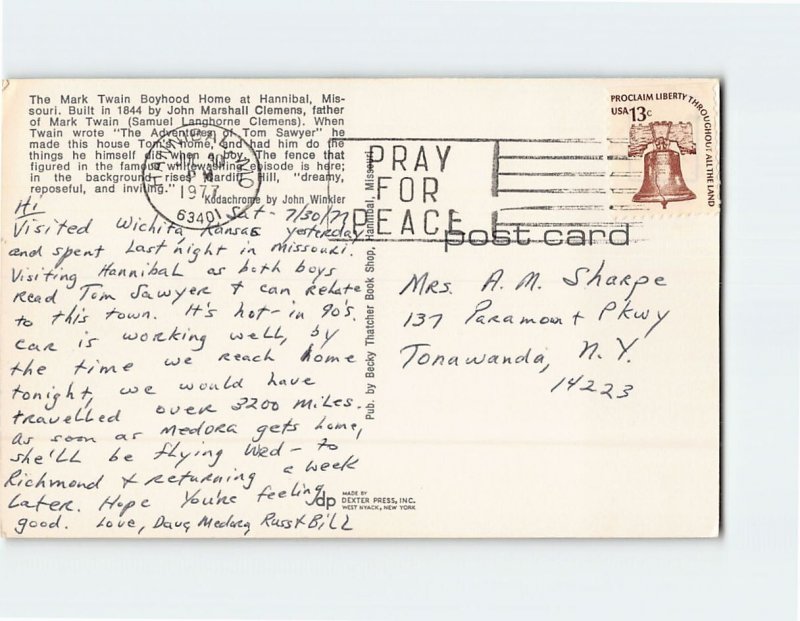 The Mark Twain Boyhood Home at Hannibal, Mis-
souri. Built in 1844 by John Marshall Clemens, father
of Mark Twain (Samuel Langhorne Clemens). When
Twain wrote "The Adventures of Tom Sawyer" he
made this house Tom's home, and had him do the
things he himself did when a boy. The fence that
figured in the famous whitewashing episode is here;
in the background rises Cardiff Hill, "dreamy,
reposeful, and inviting."
Kodachrome by John Winkler
HANNIBAL, MO
PM
30
1977
63401
PRAY
FOR
PEACE
PROCLAIM LIBERTY THROUGHOUT ALL THE LAND
USA 13c
post card
Hi
Sat- 7/30/77
Visited Wichita, Kansas yesterday
and spent last night in Missouri.
Visiting Hannibal as both boys
read Tom Sawyer + can relate
to this town. It's hot- in 90's.
car is working well, by
the time we reach home
tonight, we would have
travelled over 3200 miles.
As soon as Medora gets home,
she'll be flying Wed- to
Richmond + returning a week
later. Hope you're feeling
good. Love, Doug Medora, Russ + Bill
Pub. by Becky Thatcher Book Shop, Hannibal, Missouri
Mrs. A. M. Sharpe
137 Paramount Pkwy
Tonawanda, N.Y.
14223
dp
MADE BY
DEXTER PRESS, INC.
WEST NYACK, NEW YORK